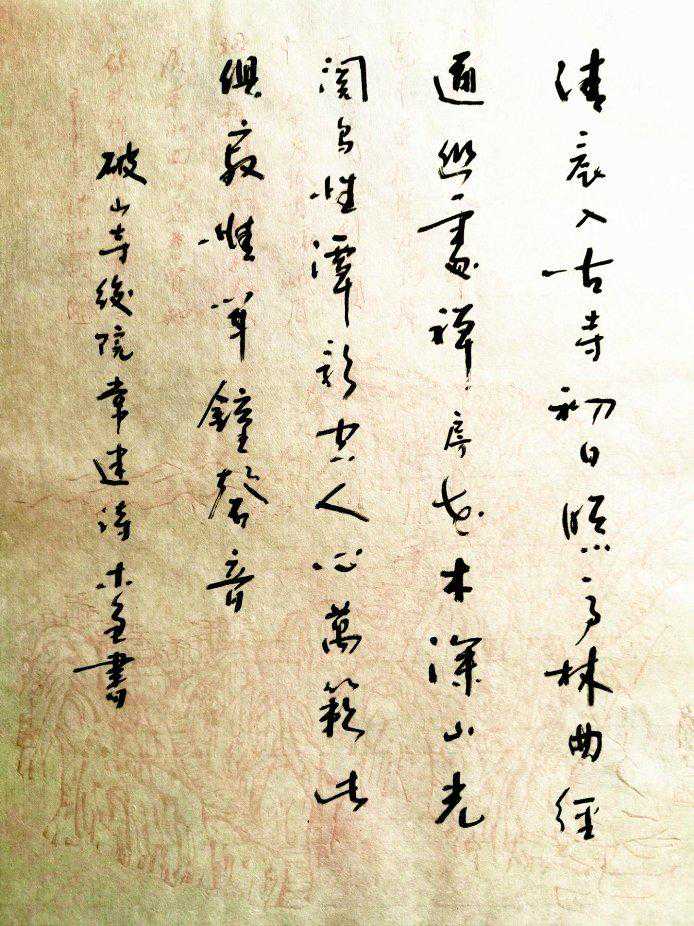 清晨入古寺初日照高林曲徑
通幽處禪房花木深山光
閱鳥性潭影空人心萬籟此
俱寂惟聞鐘磬音
破山寺後院常建詩木書